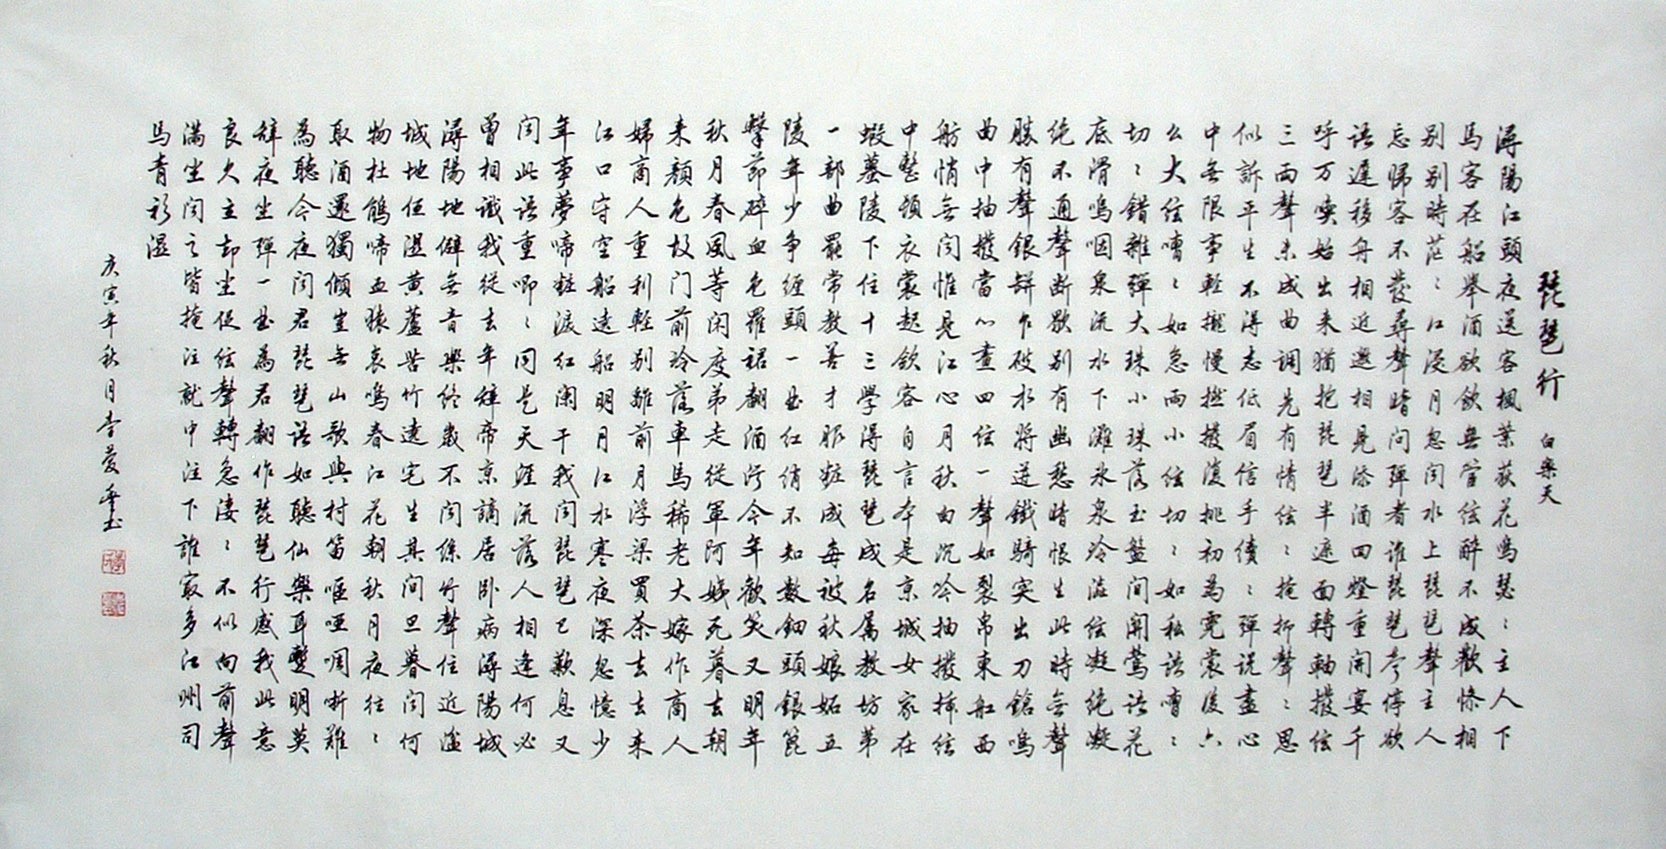 琵琶行 白樂天
潯陽江頭夜送客楓葉荻花秋瑟〻主人下
馬客在船舉酒欲飲無管絃醉不成歡慘相
別別時茫〻江浸月忽聞水上琵琶聲主人
忘歸客不發尋聲暗問彈者誰琵琶聲停欲
語遲移舟相近邀相見添酒回燈重開宴千
呼万喚始出來猶抱琵琶半遮面轉軸撥絃
三兩聲未成曲調先有情絃〻掩抑聲〻思
似訴平生不得志低眉信手續〻彈說盡心
中無限事輕攏慢撚撥復挑初為霓裳後六
么大絃嘈〻如急雨小絃切〻如私語嘈〻
切〻錯雜彈大珠小珠落玉盤間關鶯語花
底滑嗚咽泉流水下灘水泉冷澁絃凝絕凝
絕不通聲斷歇別有幽愁暗恨生此時無聲
勝有聲銀瓶乍破水將迸鐵騎突出刀鎗鳴
曲中抽撥當心畫四絃一聲如裂帛東船西
舫悄無聞惟見江心月秋白沉吟抽撥插絃
中整頓衣裳起歛容自言本是京城女家在
蝦蟇陵下住十三學得琵琶成名屬教坊第
一部曲罷常教善才服粧成每被秋娘妬五
陵年少争纏頭一曲紅綃不知數鈿頭銀篦
擊節碎血色羅裙翻酒污今年歡笑又明年
秋月春風等閑度弟走從軍阿姨死暮去朝
来顏色故門前冷落車馬稀老大嫁作商人
婦商人重利輕別離前月浮梁買茶去去来
江口守空船遶船明月江水寒夜深忽憶少
年事夢啼粧淚紅闌干我聞琵琶已歎息又
聞此語重唧〻同是天涯流落人相逢何必
曾相識我從去年辭帝京謫居卧病潯陽城
潯陽地僻無音樂終歲不聞絲竹聲住近湓
城地低濕黄蘆苦竹遶宅生其間旦暮聞何
物杜鵑啼血猿哀鳴春江花朝秋月夜往〻
取酒還獨傾豈無山歌與村笛嘔啞啁哳難
為聽今夜聞君琵琶語如聽仙樂耳暫明莫
辭夜坐彈一曲為君翻作琵琶行感我此意
良久立却坐促絃聲轉急淒〻不似向前聲
滿坐聞之皆掩泣就中泣下誰最多江州司
馬青衫濕
庚寅年秋月李愛書